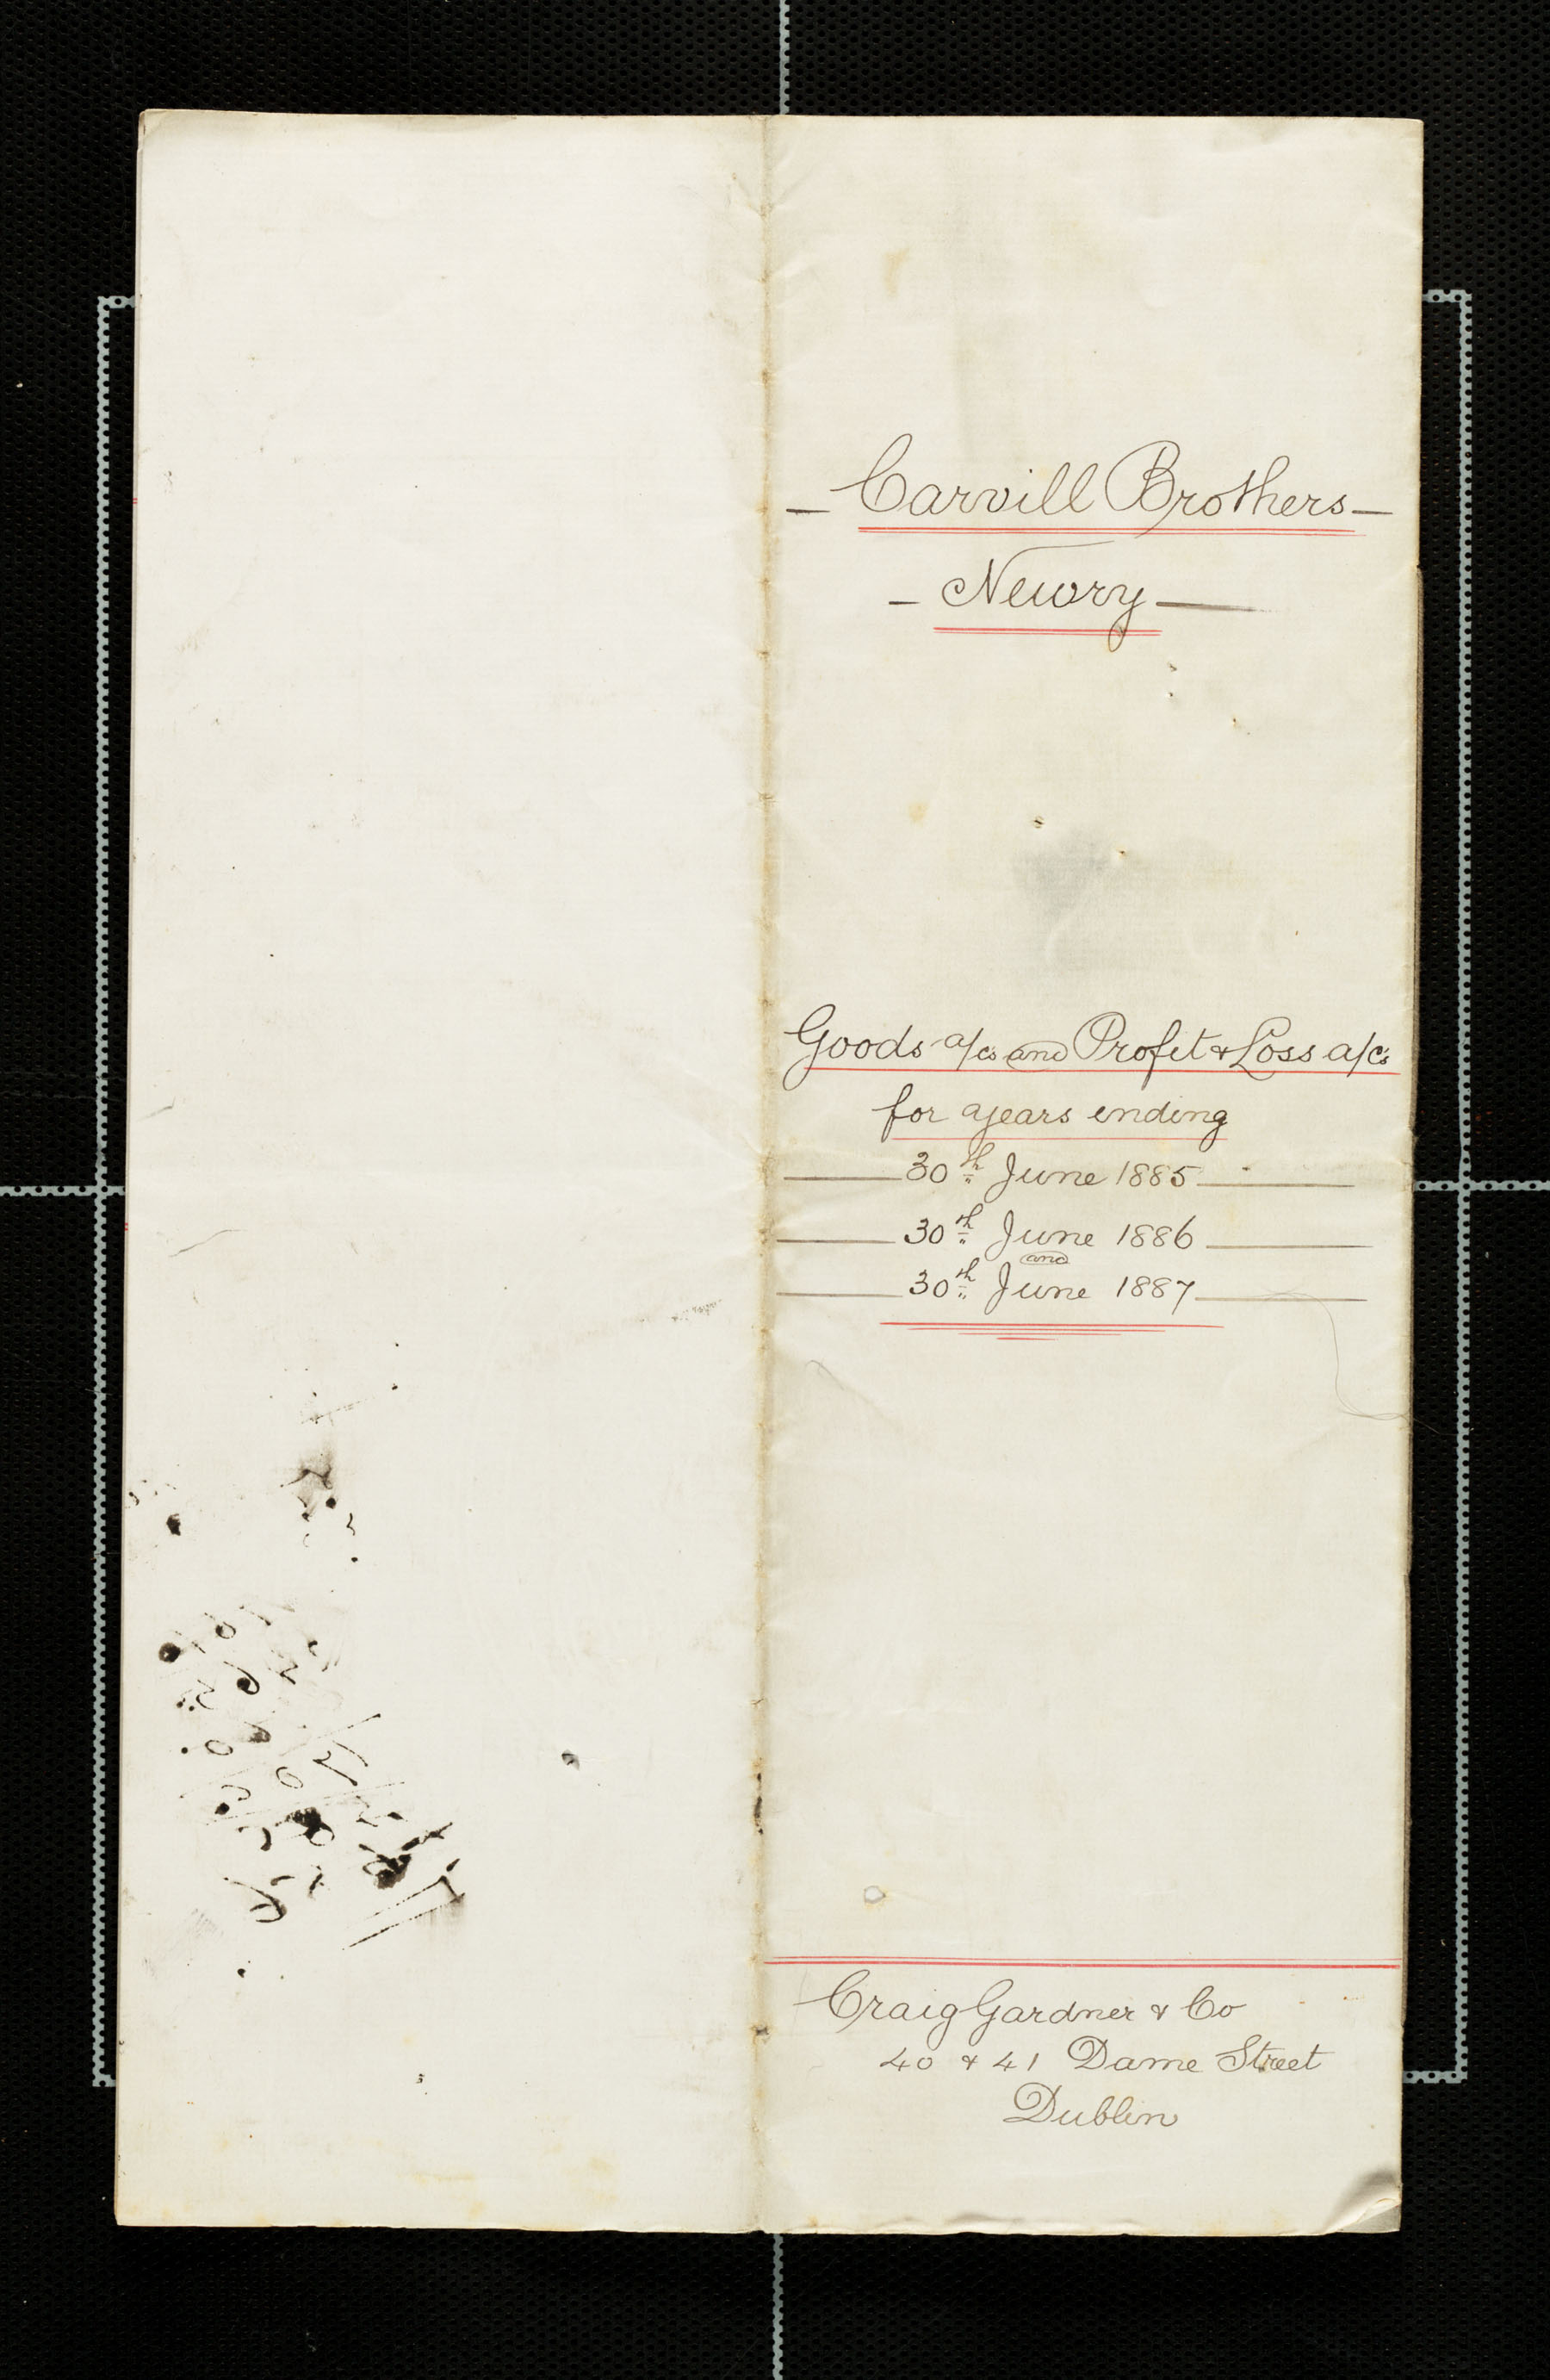 – Carvill Brothers –
– Newry –
Goods a/cs and Profit & Loss a/cs
for years ending
30th June 1885
30th June 1886
and
30th June 1887
Craig Gardner & Co
40 & 41 Dame Street
Dublin